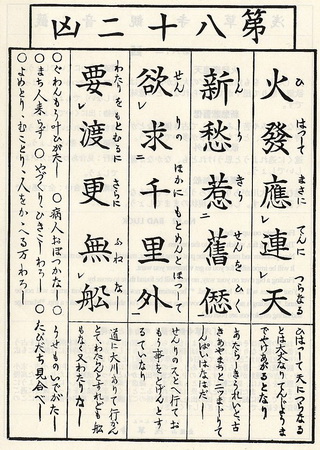 第八十二凶
火發應連天
ひ はつして まさに てんに つらなる
ひはつして天につらなる
とは大火なりてんじやうま
でやけあがるとなり
新愁惹舊愆
しん しう きう せんを ひく
あたらしきうれいと古
きあやまちと二つまじりて
しんぱいはなはだし
欲求千里外
せん りの ほかに もとめんと ほつして
行てお
もふ事をとげんとす
るていなり
要渡更無舩
わたりを もとむるに さらに ふね なし
道に大川ありて行
とてわたんとすれども船
もなく又わたりなし
○ぐわんもう叶ひがたし ○病人おぼつかなし ○うせものいでがたし
○まち人来らず ○やづくりひきこしわろし ○たびだち見合べし
○よめとり、むことり、人をかゝへる万わろし